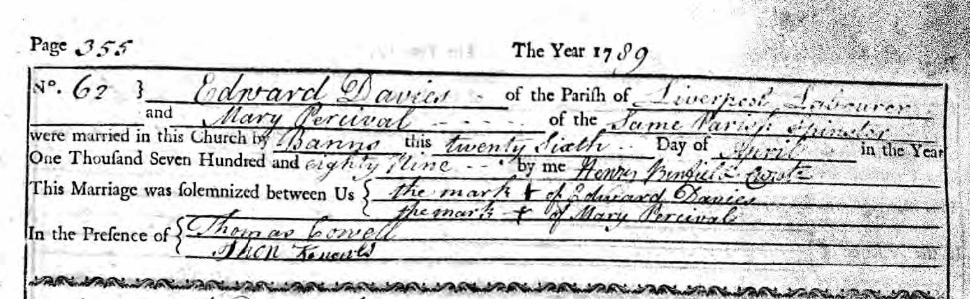 Page 355 The Year 1789
No. 62 } Edward Davies of the Pariſh of Liverpool Labourer
and Mary Percival of the Same Pariſh Spinster
were married in this Church by Banns this twenty Sixth Day of April in the Year
One Thouſand Seven Hundred and eighty Nine by me Henry Curate
This Marriage was ſolemnized between Us { the mark + of Edward Davies
the mark + of Mary Percival
In the Preſence of { Thomas Cowell